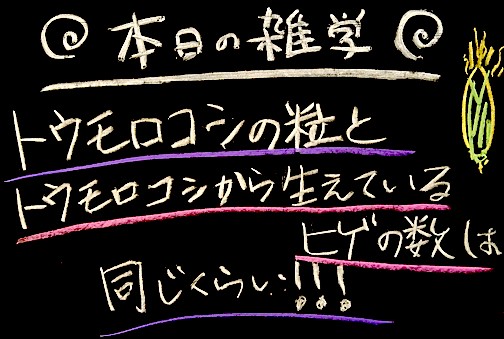 本日の雑学
トウモロコシの粒と
トウモロコシから生えている
ヒゲの数は
同じくらい!!!